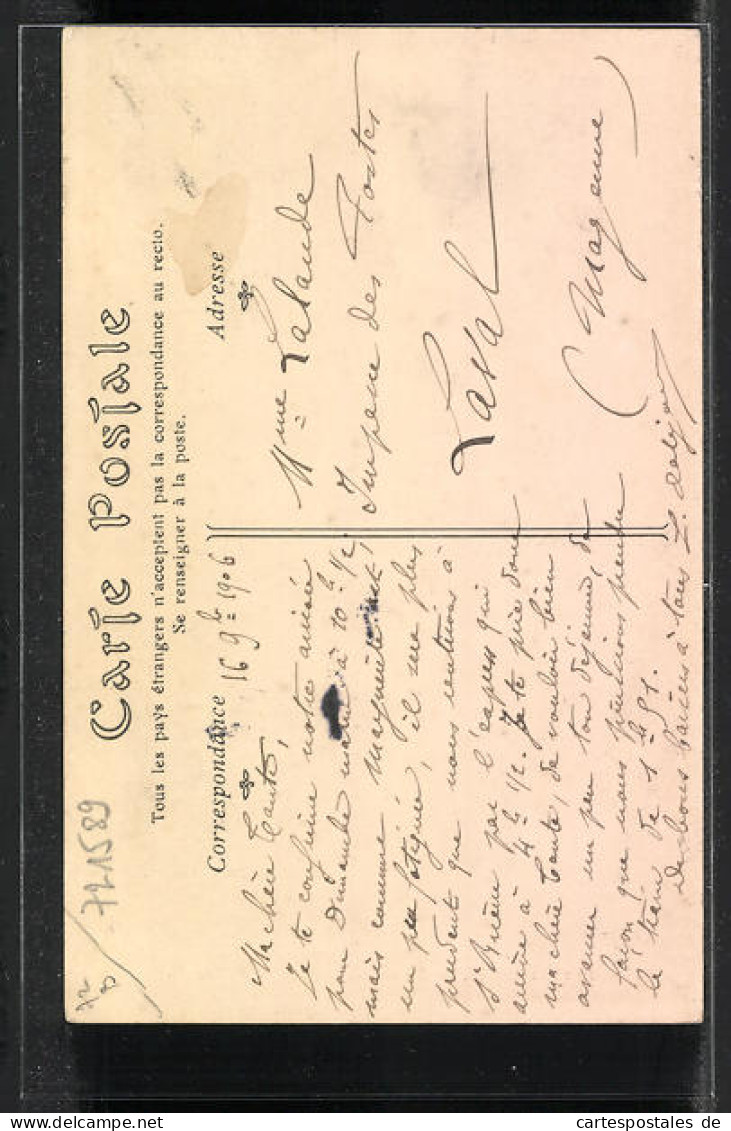 Carte Postale
Tous les pays étrangers n'acceptent pas la correspondance au recto.
Se renseigner à la poste.
Correspondance
Adresse
72
721589
16 9bre 1906
Ma chère Tante,
Je te confirme notre arrivée
pour Dimanche matin à 10h 1/2,
mais comme Marguerite est
un peu fatiguée, il sera plus
prudent que nous rentrions à
par l'express qui
arrive à 4h 1/2. Je te prie donc
ma chère Tante, de vouloir bien
avancer un peu ton déjeuner, de
façon que nous puissions prendre
le train de 1h 51.
Des bons baisers à tous
Mme Lalande
Impasse des Postes
Laval
(Mayenne)
cartespostales de